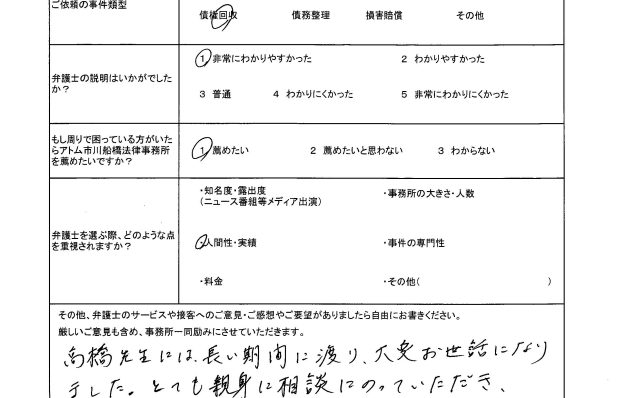 ご依頼の事件類型
債権回収 債務整理 損害賠償 その他
弁護士の説明はいかがでした
か？
1 非常にわかりやすかった 2 わかりやすかった
3 普通 4 わかりにくかった 5 非常にわかりにくかった
もし周りで困っている方がいた
らアトム市川船橋法律事務所
を薦めたいですか？
1 薦めたい 2 薦めたいと思わない 3 わからない
弁護士を選ぶ際、どのような点
を重視されますか？
・知名度・露出度
（ニュース番組等メディア出演）
・事務所の大きさ・人数
・人間性・実績
・事件の専門性
・料金
・その他（ ）
その他、弁護士のサービスや接客へのご意見・ご感想やご要望がありましたら自由にお書きください。
厳しいご意見も含め、事務所一同励みにさせていただきます。
高橋先生には、長い期間に渡り、大変お世話になり
ました。とても親身に相談にのっていただき、